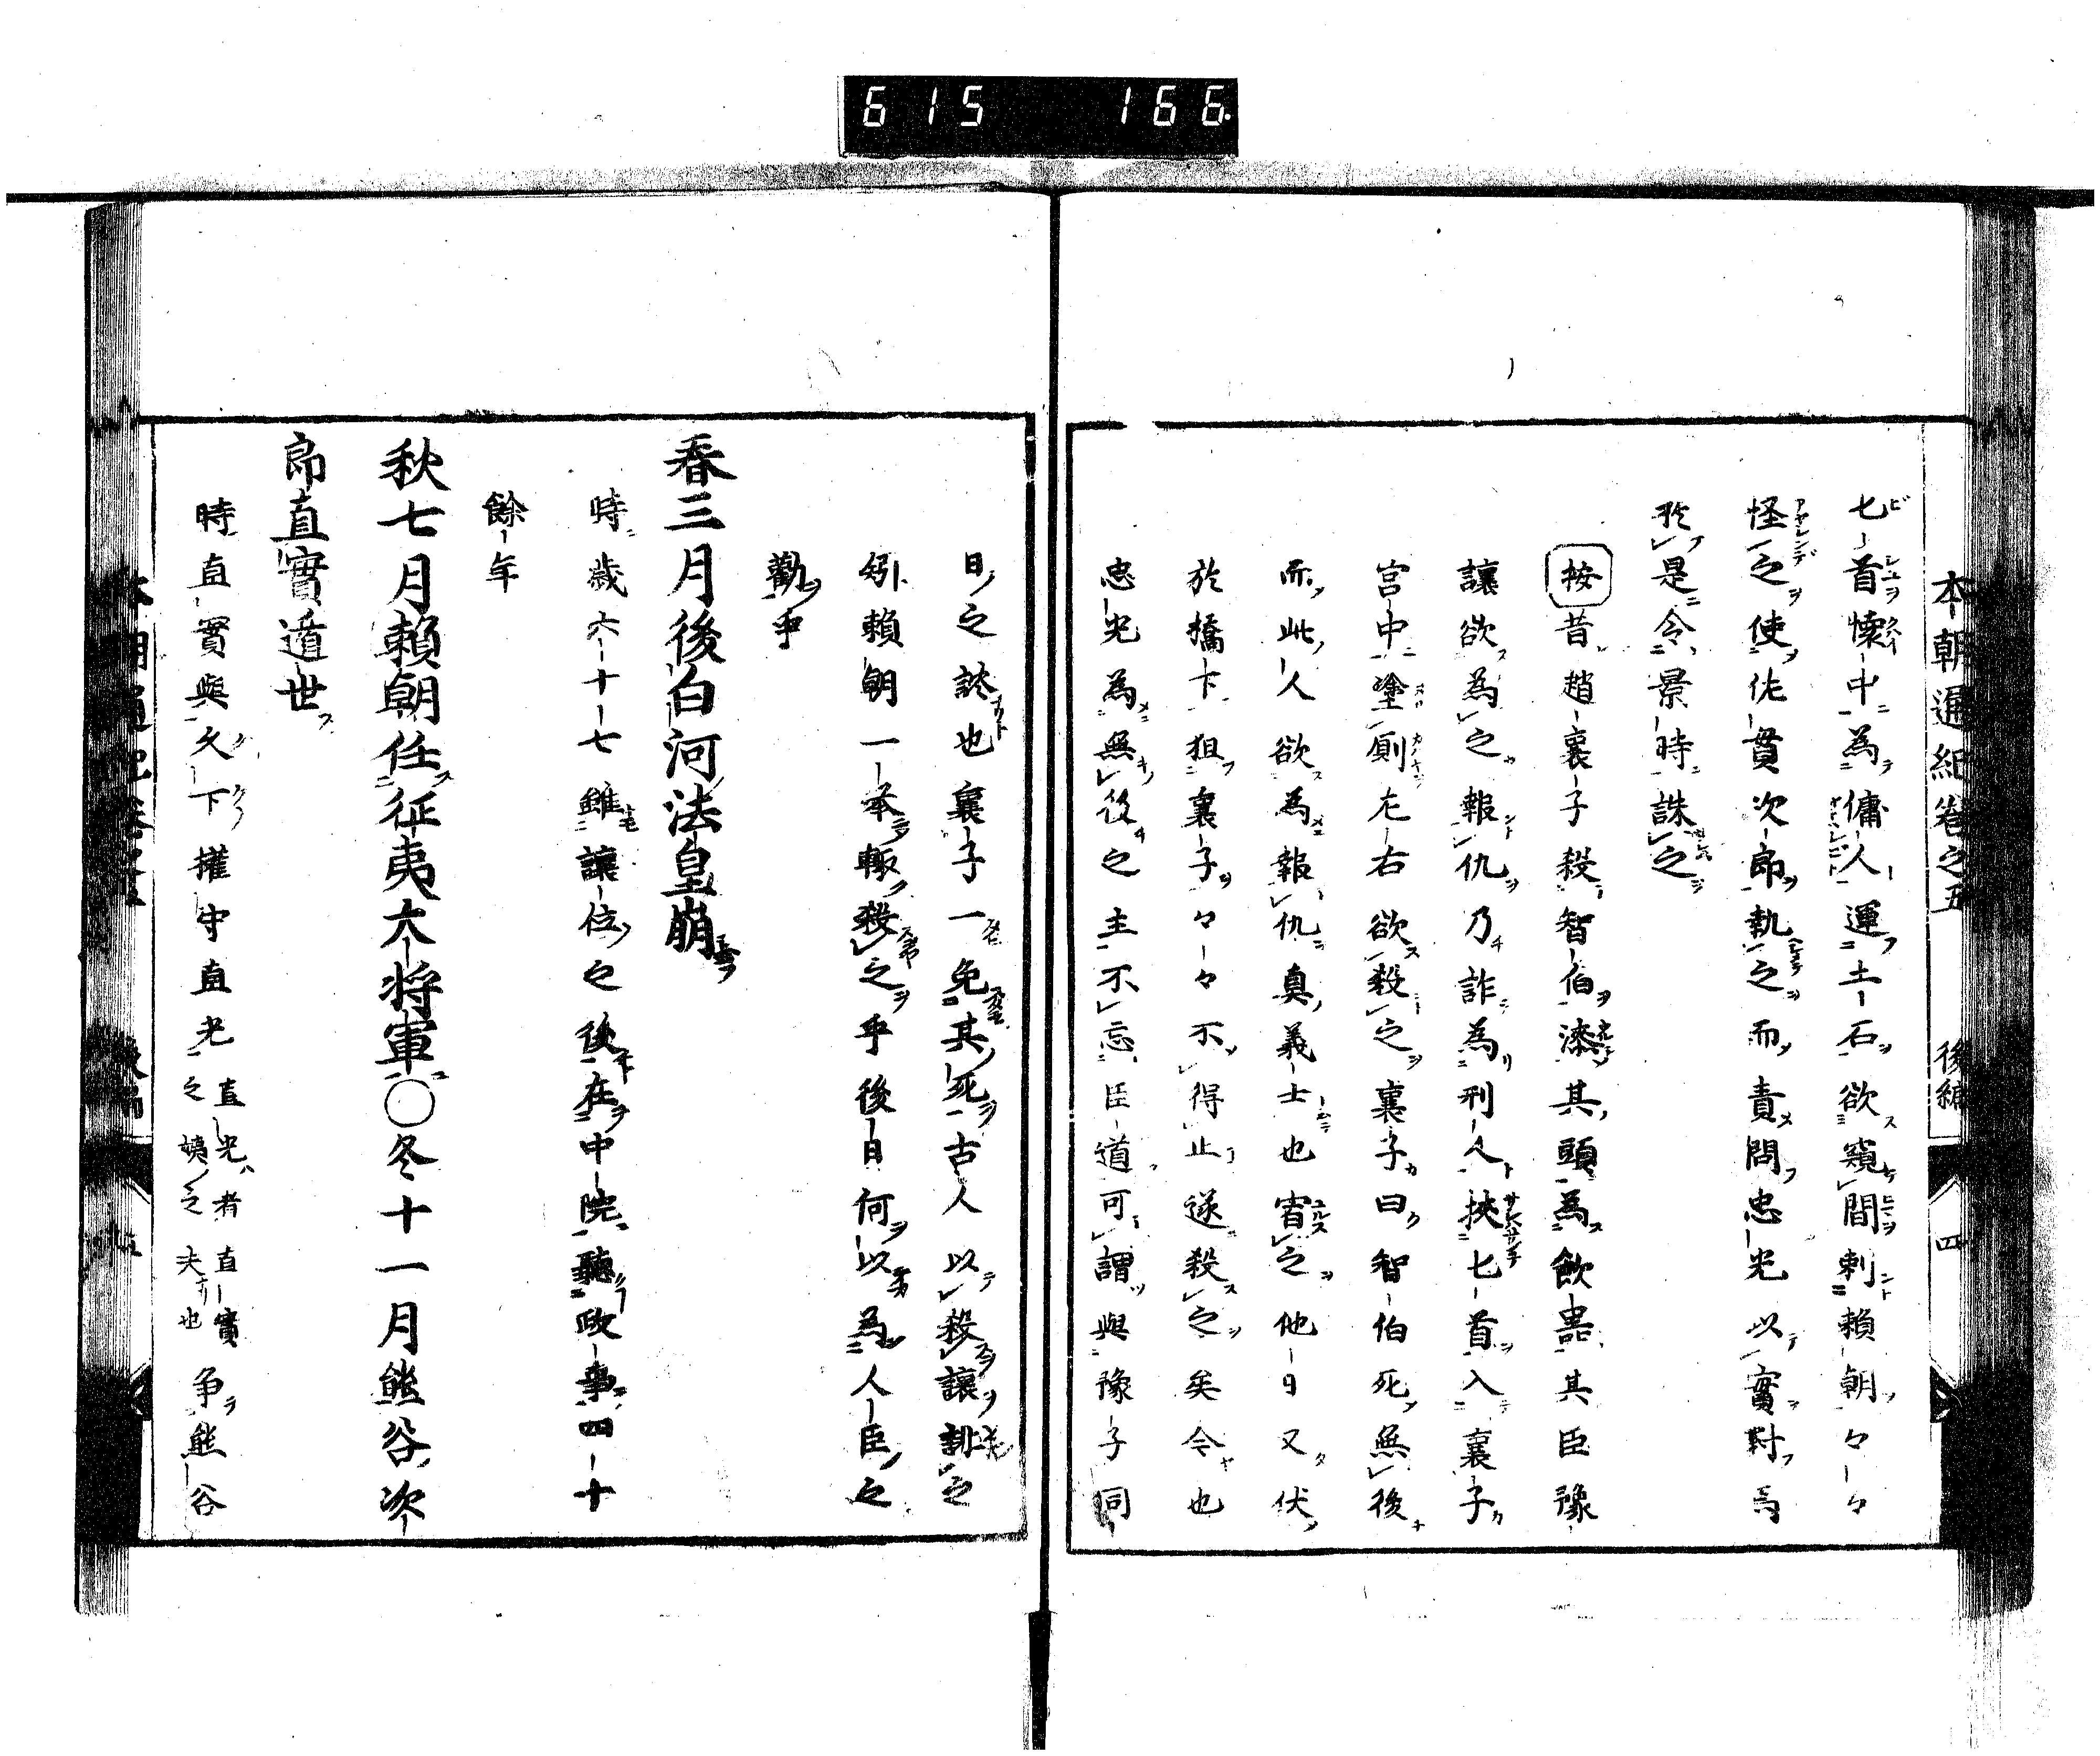 615 166
本朝通紀卷之五 後編 四
匕首懷中為傭人運土石欲窺間刺賴朝々々
怪之使佐貫次郎執之而責問忠光以實對焉
於是令景時誅之
按昔趙襄子殺智伯漆其頭為飲噐其臣豫
讓欲為之報仇乃詐為刑人挾匕首入襄子
宮中塗厠左右欲殺之襄子曰智伯死無後
而此人欲為報仇真義士也宥之他日又伏
於橋下狙襄子々々不得止遂殺之矣今也
忠光為無後之主不忘臣道可謂與豫子同
日之談也襄子一免其死古人以殺讓誹之
矧賴朝一本輙殺之乎後日何以為人臣之
勸乎
春三月後白河法皇崩
時歲六十七雖讓位之後在中院聽政事四十
餘年
秋七月賴朝任征夷大将軍〇冬十一月熊谷次
郎直實遁世
時直實與久下權守直光直光者直實之姨之夫也争熊谷